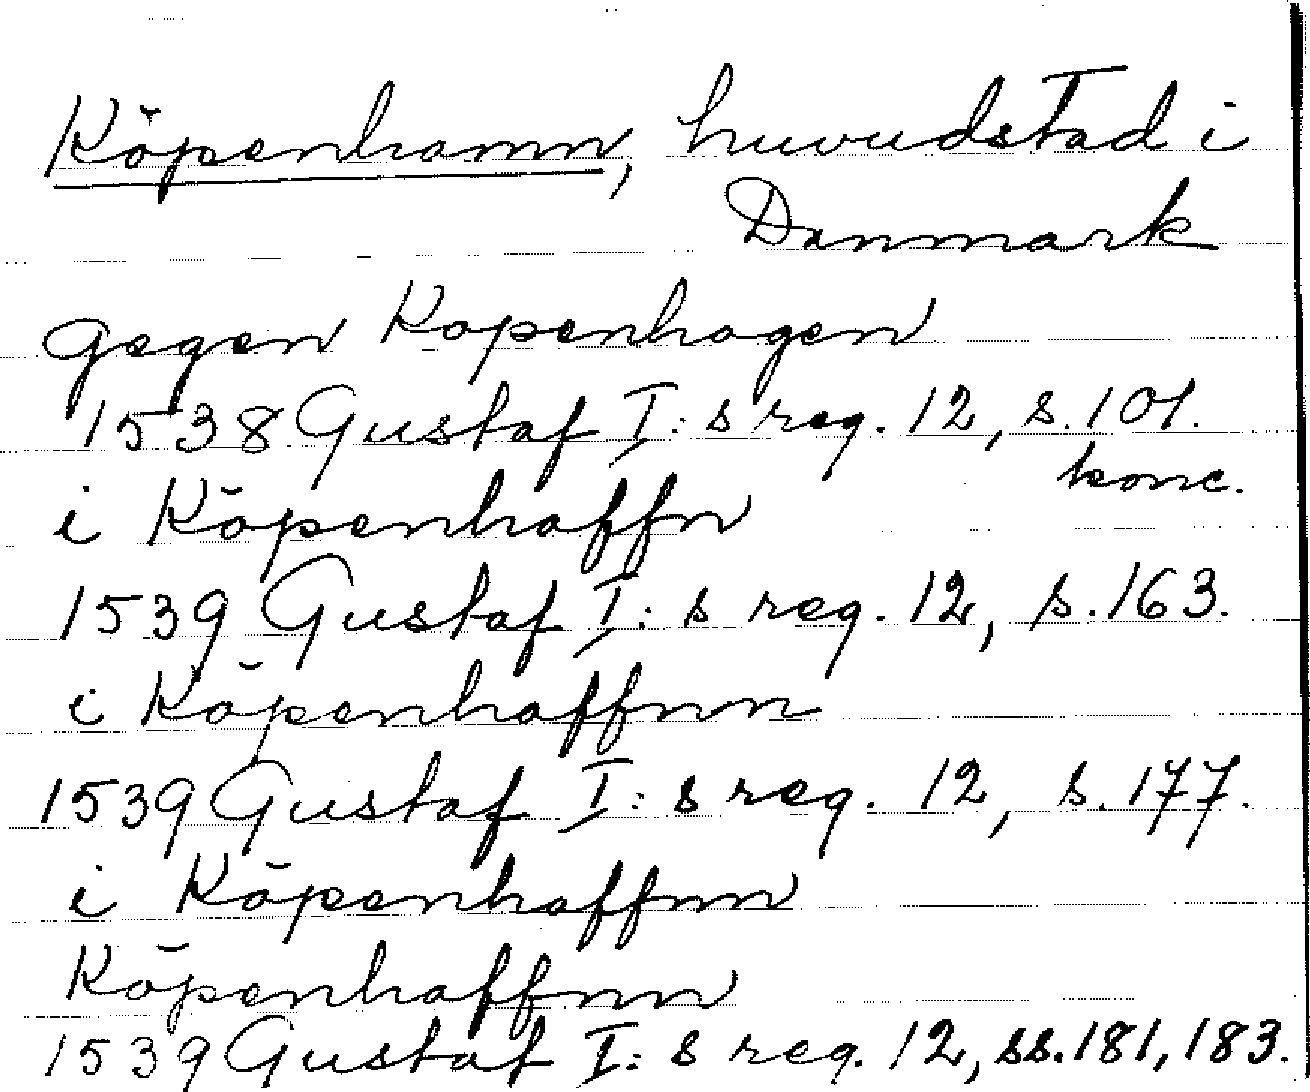 Köpenhamn, huvudstad i
Danmark
gegen Kopenhagen
1538 Gustaf I:s reg. 12, s. 101.
konc.
i Köpenhaffn
1539 Gustaf I:s reg. 12, s. 163.
i Köpenhaffnn
1539 Gustaf I:s reg. 12, s. 177.
i Köpenhaffnn
Köpenhaffnn
1539 Gustaf I:s reg. 12, ss. 181, 183.